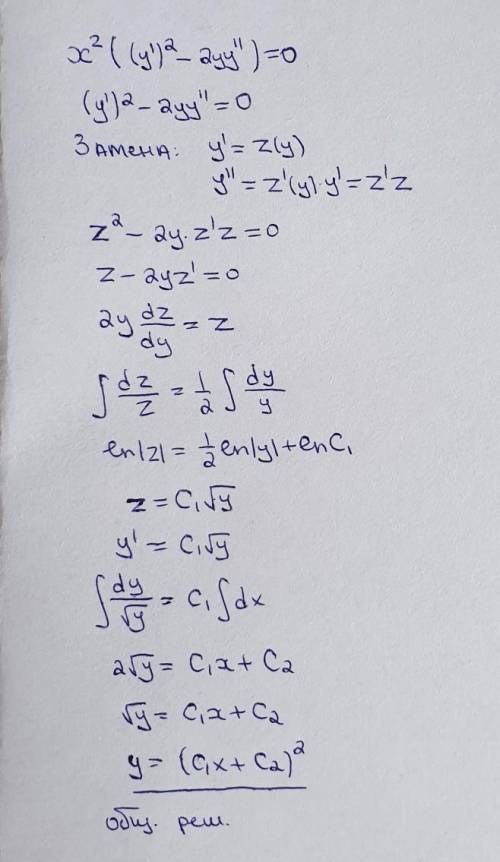 x²((y')² - 2yy'')=0
(y')² - 2yy''=0
Замена: y' = z(y)
y'' = z'(y)·y' = z'z
z² - 2y·z'z = 0
z - 2yz' = 0
2y dz/dy = z
∫ dz/z = 1/2 ∫ dy/y
ln|z| = 1/2 ln|y| + ln C₁
z = C₁√y
y' = C₁√y
∫ dy/√y = C₁∫dx
2√y = C₁x + C₂
√y = C₁x + C₂
y = (C₁x + C₂)²
общ. реш.